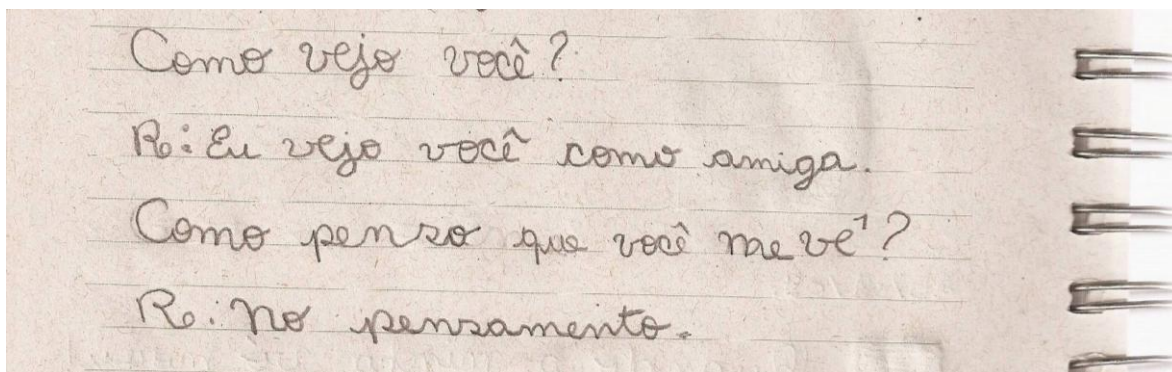 Como vejo você?
R: Eu vejo você como amiga.
Como penso que você me vê?
R: No pensamento.